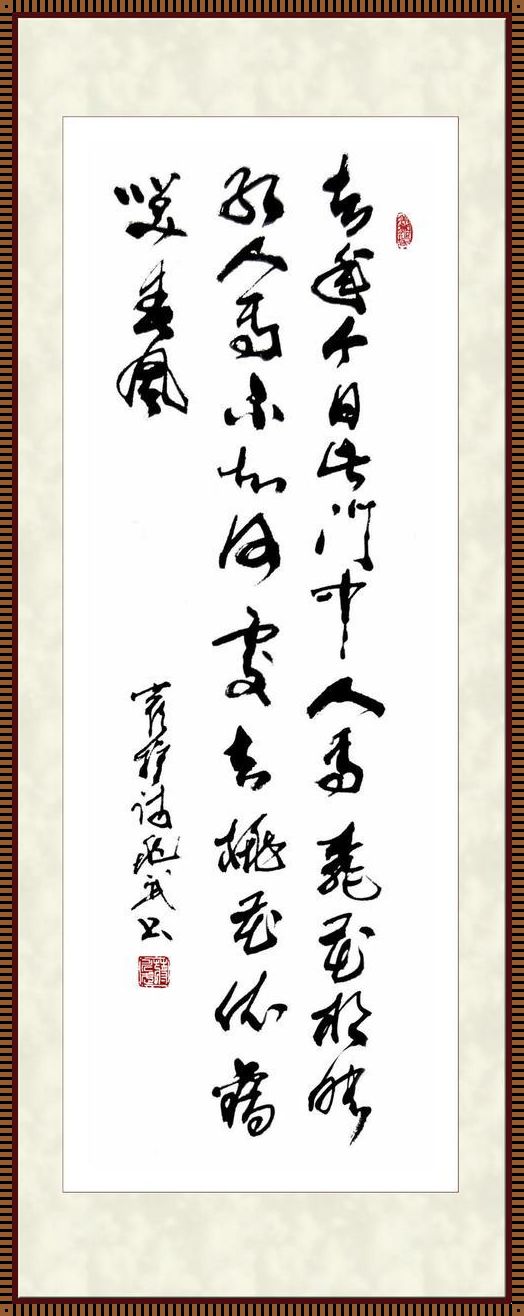 去年今日此门中人面桃花相映
红人面不知何處去桃花依舊
咲春风
崔护诗 武书